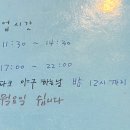 업시간
11:30 ~ 14:30
17:00 ~ 22:00
야구 하는날 밤 12시 까지
월요일 쉽니다